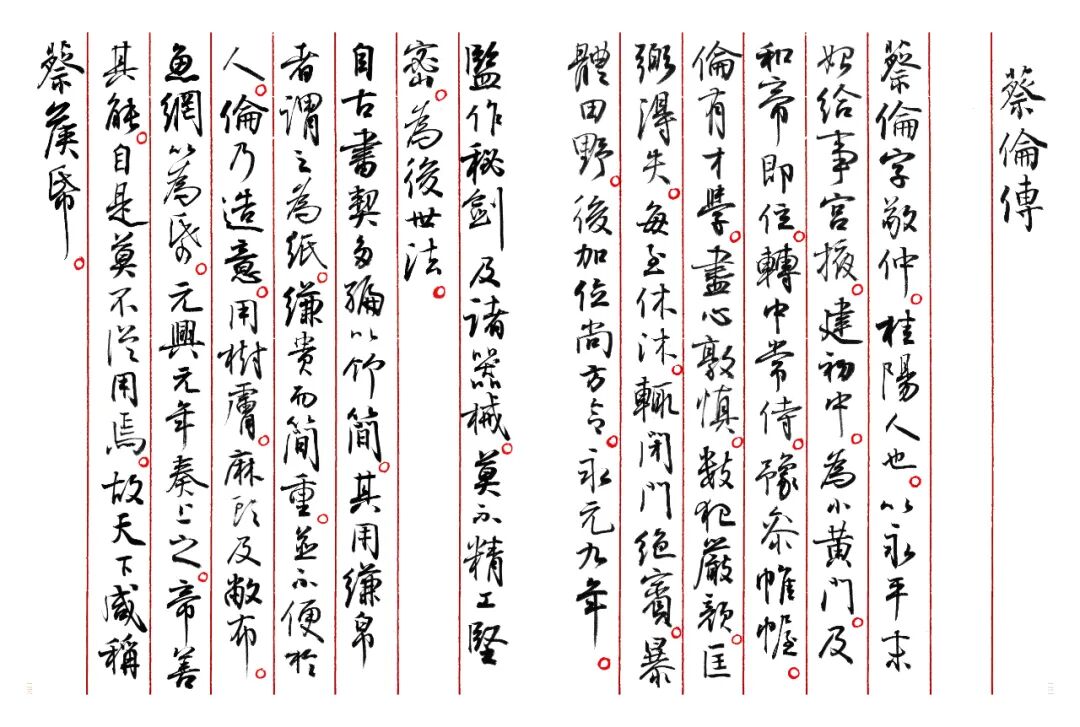 蔡倫傳
蔡倫字敬仲。桂陽人也。以永平末
始給事宮掖。建初中。為小黃門。及
和帝即位。轉中常侍。豫參帷幄。
倫有才學。盡心敦慎。數犯嚴顏。匡
弼得失。每至休沐。輒閉門絕賓。暴
體田野。後加位尚方令。永元九年。
監作秘劍及諸器械。莫不精工堅
密。為後世法。
自古書契多編以竹簡。其用縑帛
者謂之為紙。縑貴而簡重。並不便於
人。倫乃造意。用樹膚。麻頭及敝布。
魚網以為紙。元興元年奏上之。帝善
其能。自是莫不從用焉。故天下咸稱
蔡侯帋。